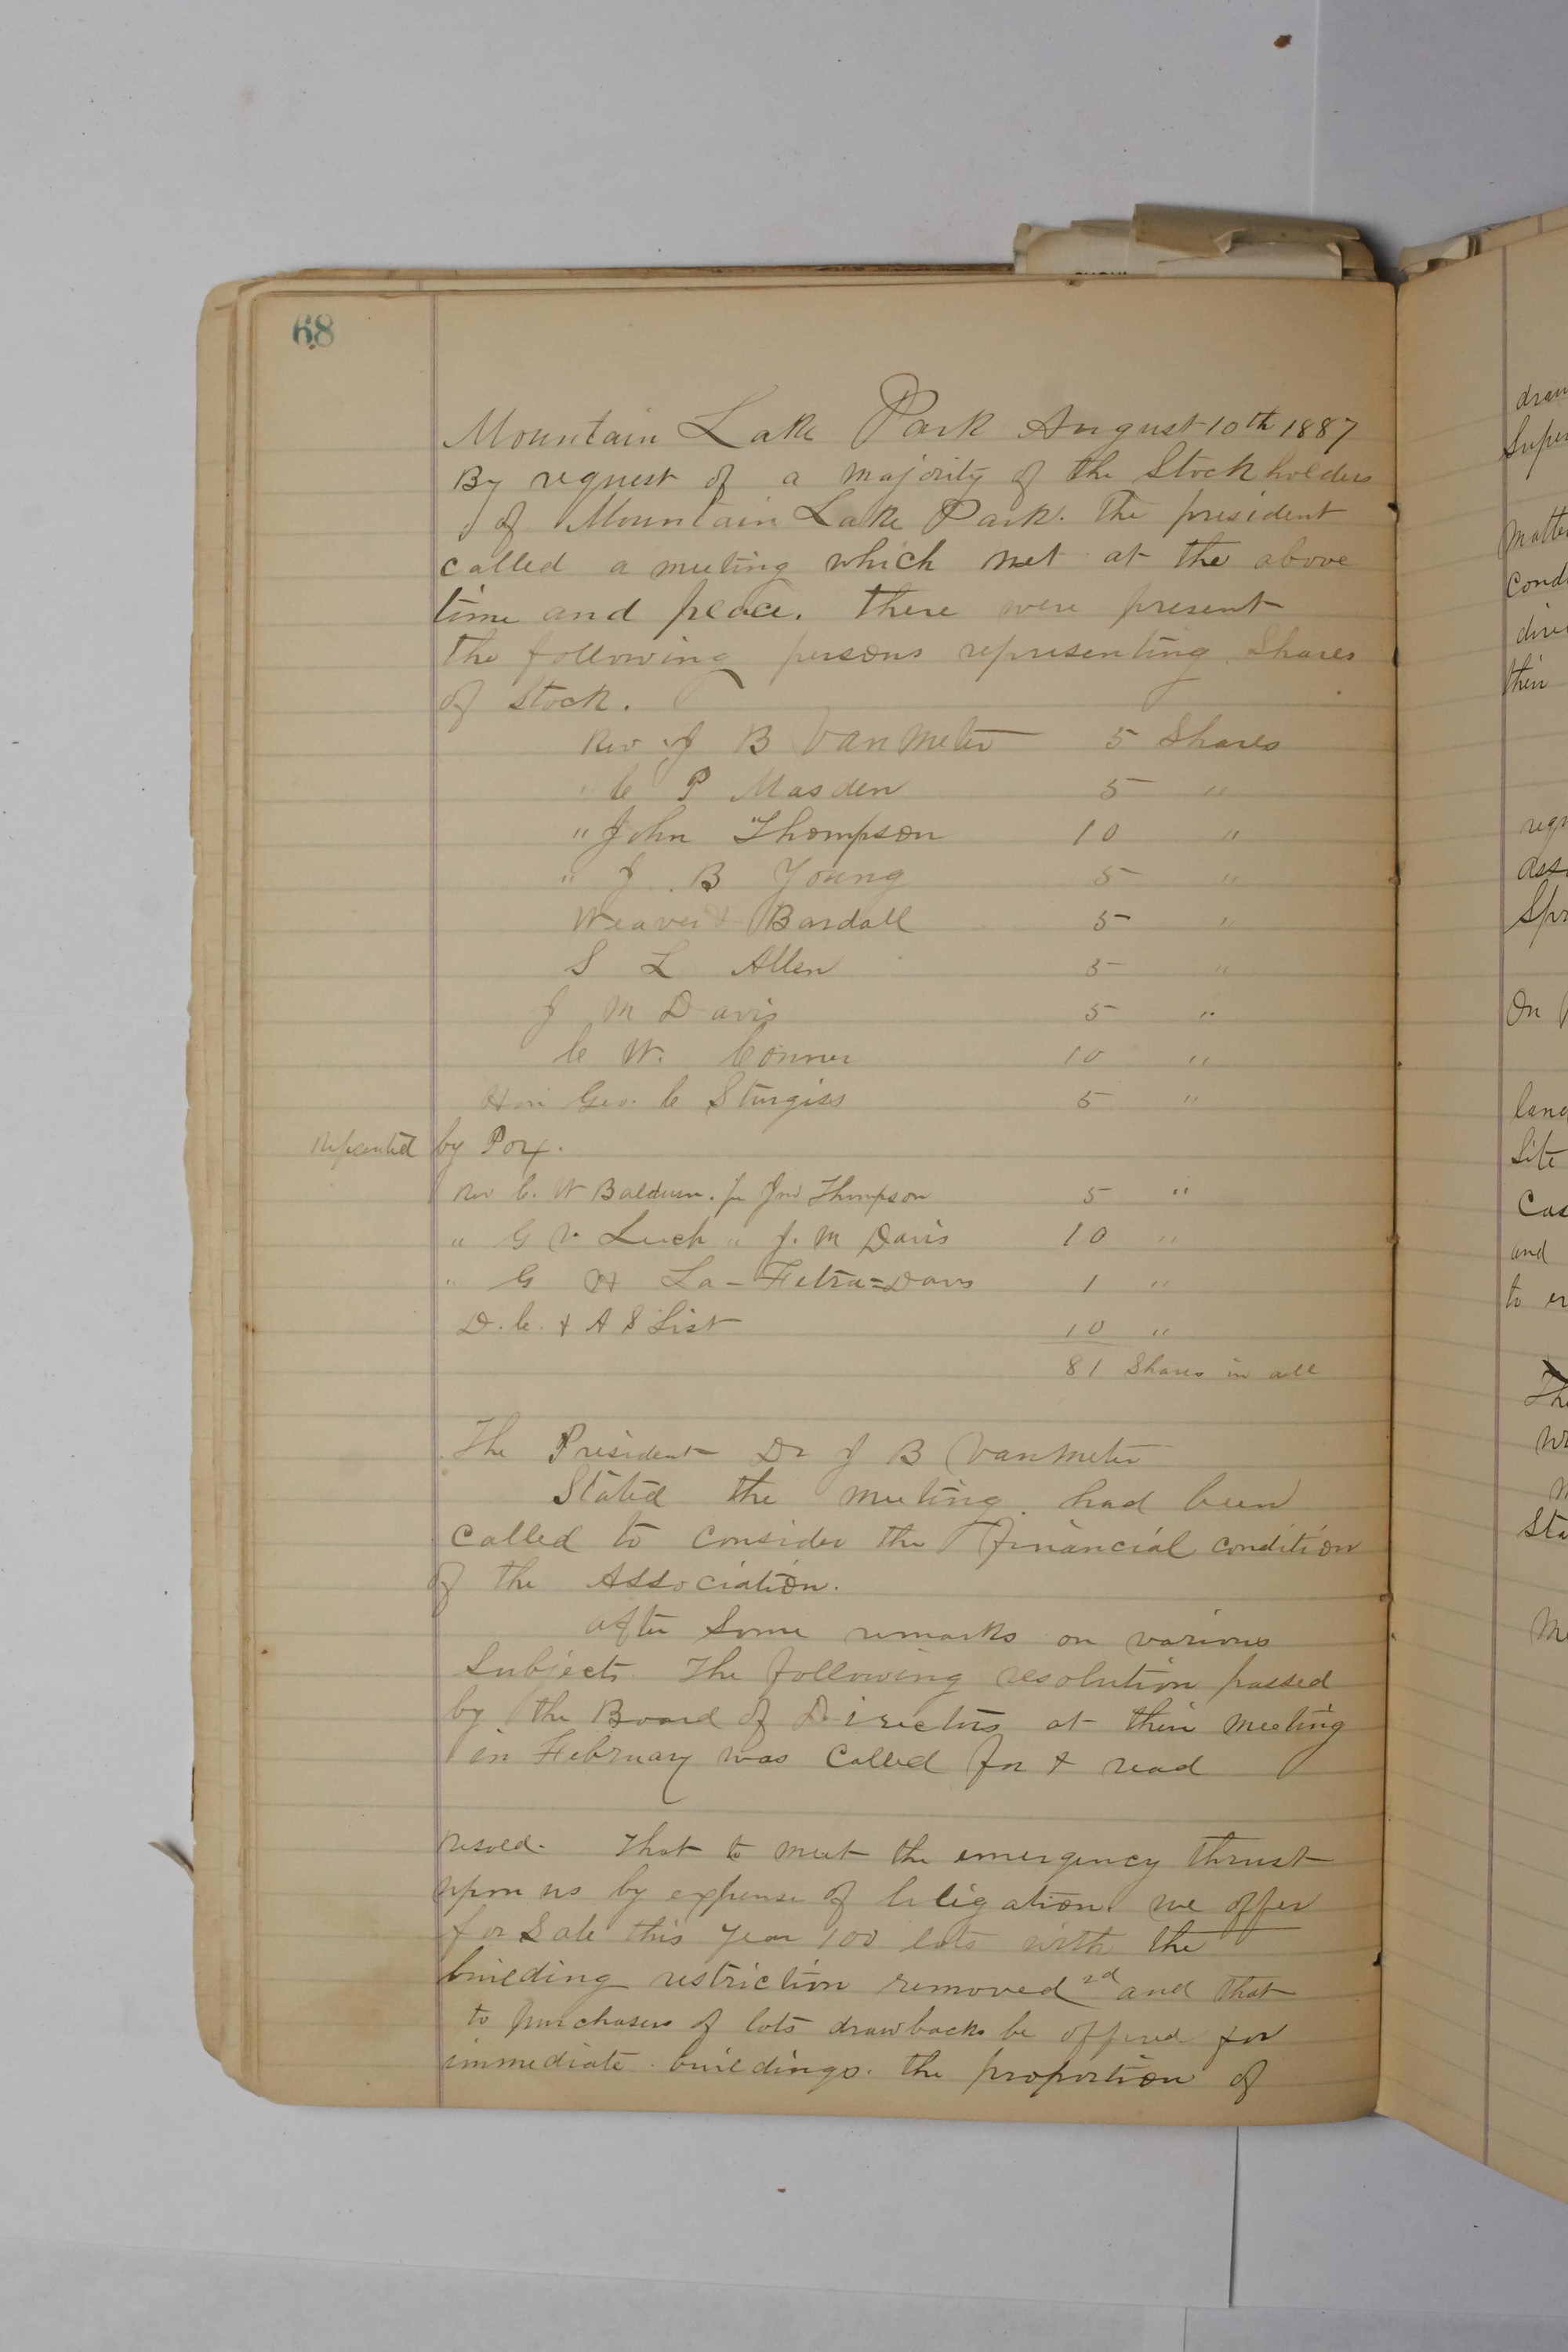 68
Mountain Lake Park August 10th 1887
By request of a majority of the Stockholders
of Mountain Lake Park. The president
called a meeting which met at the above
time and place. There were present
the following persons representing Shares
of Stock.
Rev J B VanMeter 5 Shares
" C P Masden 5 "
" John Thompson 10 "
" J B Young 5 "
Weaver & Bardall 5 "
S L Allen 5 "
J M Davis 5 "
C W. Conner 10 "
Hon Geo. C Sturgiss 5 "
by Poxy.
Rev C. W Baldwin. for Jno Thompson 5 "
" G V. Leech " J. M Davis 10 "
" G H La-Fetra=Davis 1 "
D. C. & A S List 10 "
81 Shares in all
The President Dr J B VanMeter
Stated the meeting had been
called to consider the financial condition
of the Association.
after Some remarks on various
Subjects. The following resolution passed
by the Board of Directors at their meeting
in February was Called for & read
Resold. That to meet the emergency thrust
upon us by expense of litigation. we offer
for Sale this year 100 lots with the
building restriction removed 2d and that
to purchasers of lots drawbacks be offered for
immediate buildings. the proportion of
draw
Super
matte
Cond
dire
their
requ
ass
Spr
On
land
Site
Cas
and
to er
The
Sta